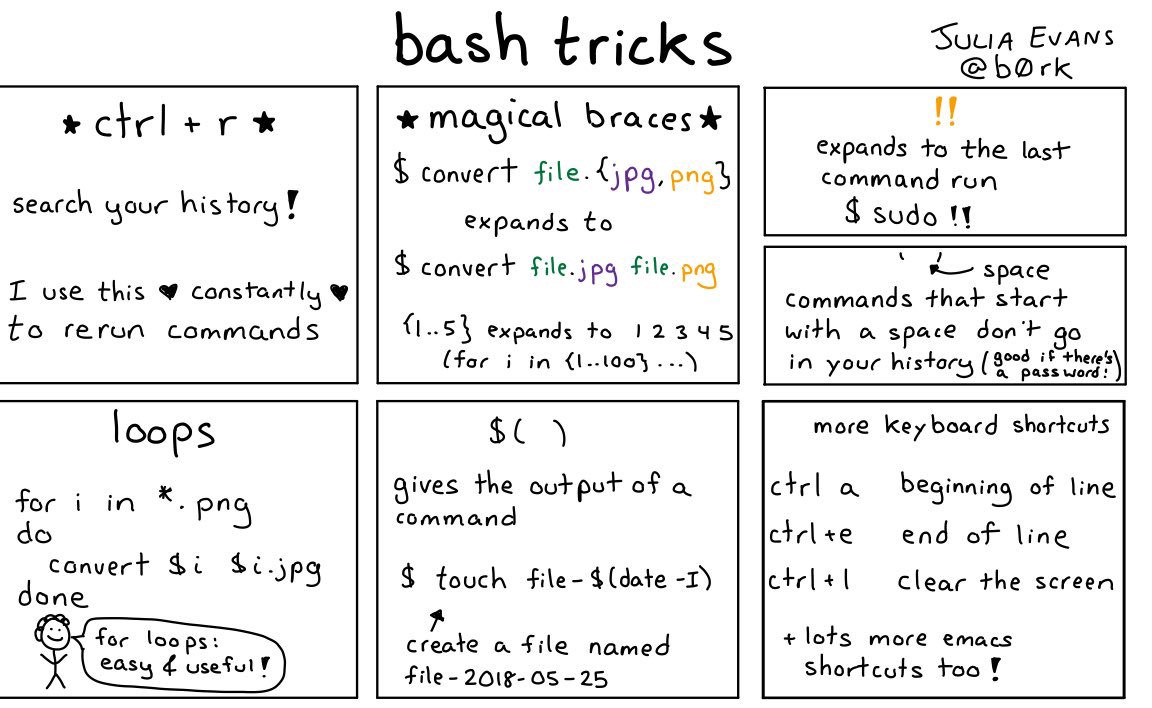 bash tricks
JULIA EVANS
@b0rk
★ ctrl + r ★
search your history!
I use this ♥ constantly ♥
to rerun commands
★ magical braces ★
$ convert file.{jpg,png}
expands to
$ convert file.jpg file.png
{1..5} expands to 1 2 3 4 5
(for i in {1..100} ...)
!!
expands to the last
command run
$ sudo !!
space
commands that start
with a space don't go
in your history (good if there's
a password!)
loops
for i in *.png
do
convert $i $i.jpg
done
for loops:
easy & useful!
$( )
gives the output of a
command
$ touch file-$(date -I)
create a file named
file-2018-05-25
more keyboard shortcuts
ctrl a beginning of line
ctrl+e end of line
ctrl+l clear the screen
+ lots more emacs
shortcuts too!